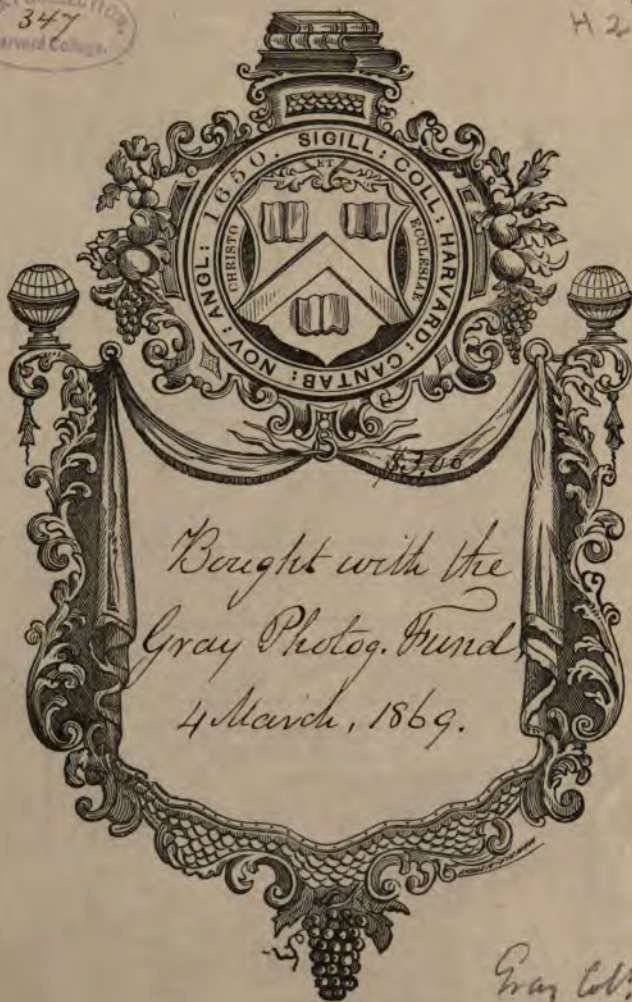 347
Harvard College.
H 2
SIGILL: COLL: HARVARD: CANTAB: NOV: ANGL: 1650.
ET
CHRISTO
ECCLESIAE
$3,00
Bought with the
Gray Photog. Fund,
4 March, 1869.
Gray